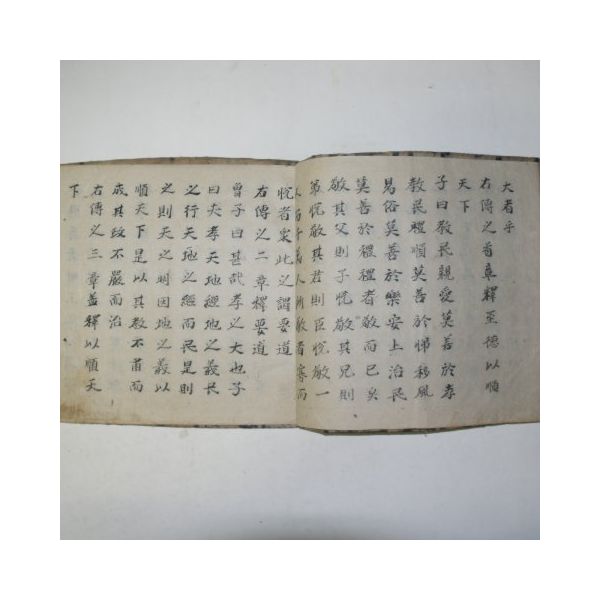 大者乎
右傳之首章釋至德以順
天下
子曰敎民親愛莫善於孝
敎民禮順莫善於悌移風
易俗莫善於樂安上治民
莫善於禮禮者敬而已矣
敬其父則子悅敬其兄則
弟悅敬其君則臣悅敬一
人而千萬人悅所敬者寡而
悅者衆此之謂要道
右傳之二章釋要道
曾子曰甚哉孝之大也子
曰夫孝天地經地之義民
之行天地之經而民是則
之則天之明因地之義以
順天下是以其敎不肅而
成其政不嚴而治
右傳之三章蓋釋以順天
下